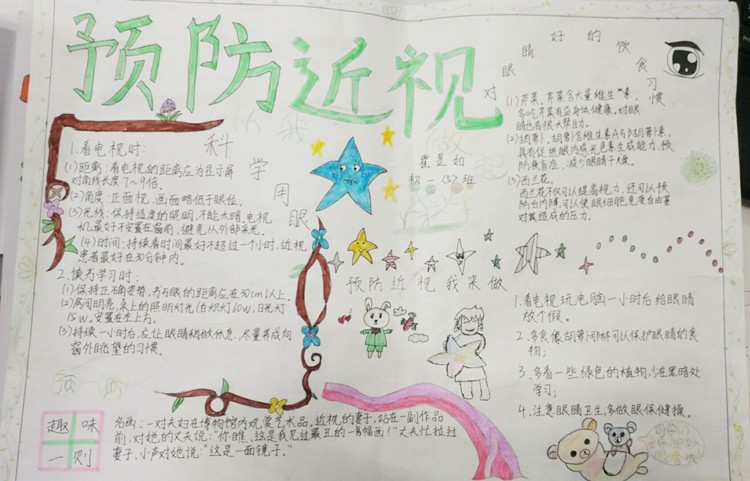 预防近视
对眼睛好的饮食习惯
科学用眼
1.看电视时:
(1)距离:看电视的距离应为荧于屏
对角线长度7~9倍。
(2)角度:正面视,画面略低于眼位。
(3)光线:保持适度的照明,不能太暗,电视
机最好不安置在窗前,避免从外部采光。
(4)时间:持续看时间最好不超过一个小时,近视
患者最好在30分钟内。
2.读书学习时:
(1)保持正确姿势,书与眼的距离应在30cm以上。
(2)房间明亮,桌上的照明灯光(白炽灯60W,日光灯
15W。安置在左上方。
(3)持续一小时后,应让眼睛稍做休息,尽量养成向
窗外眺望的习惯。
(1)芹菜、芹菜含大量维生素,
多吃芹菜有益身体健康。对眼
睛也有很大帮助。
(2)胡萝卜、胡萝卜含维生素A与β胡萝卜素,
具有促进眼内感光色素生成能力,预
防夜盲症,减少眼睛干燥。
(3)西兰花、
西兰花不仅可以提高视力,还可以预
防白内障,可以使眼细胞免受自由基
对其造成的压力。
初一(3)班
预防近视我来做
1.看电视玩电脑一小时后给眼睛
放个假。
2、多食像胡萝卜可以保护眼睛的食
物;
3、多看一些绿色的植物,少在黑暗处
学习;
4、注意眼睛卫生,多做眼保健操。
预防
趣味
一则
名画:一对夫妇在博物馆内观赏艺术品。近视的妻子,站在一副作品
前,对她的丈夫说:“你瞧,这是我见过最丑的一幅画!”丈夫忙拉过
妻子,小声对她说:“这是一面镜子。”